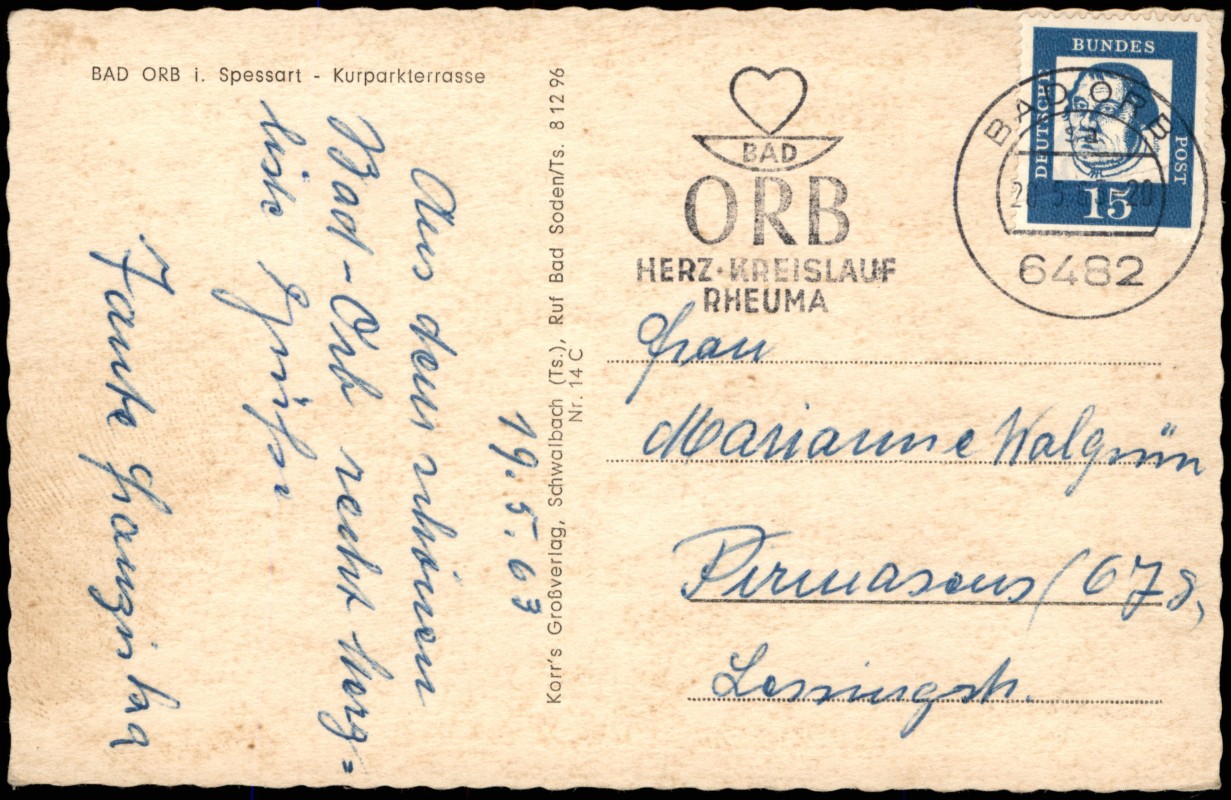 BAD ORB i. Spessart - Kurparkterrasse
19.5.63
Aus dem schönen
Bad-Orb recht herz=
lich Grüße
Tante Franziska
Korr's Großverlag, Schwalbach (Ts.), Ruf Bad Soden/Ts. 8 12 96
Nr. 14 C
BAD
ORB
HERZ·KREISLAUF
RHEUMA
BUNDES
DEUTSCHE
POST
15
BAD ORB
20.5.63-20
6482
Frau
Marianne Walgrün
Pirmasens (678,
Lessingstr.